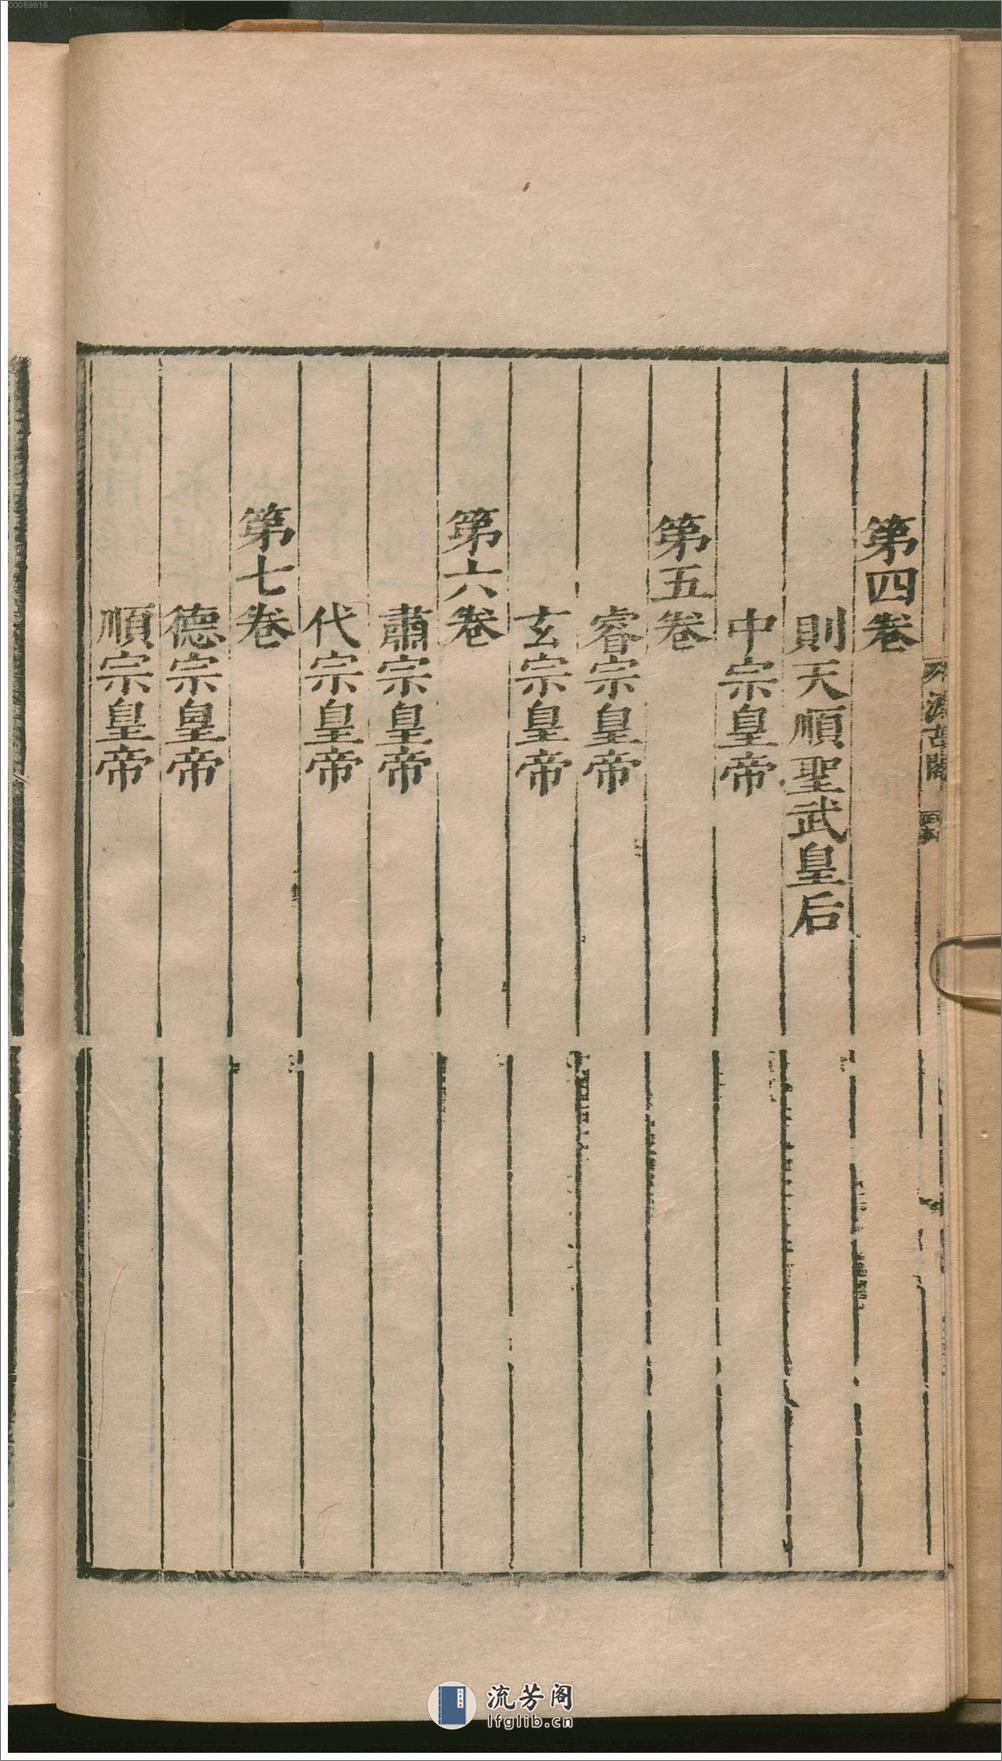 00059915
第四卷
則天順聖武皇后
中宗皇帝
第五卷
睿宗皇帝
玄宗皇帝
第六卷
肅宗皇帝
代宗皇帝
第七卷
德宗皇帝
順宗皇帝
流芳阁
lfglib.cn